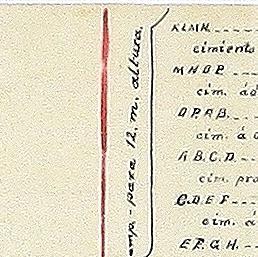 emp.- para 12. m. altura.
KLMN.
cimiento
M.N.O.P.
cim. á
O.P.A.B.
cim. á
A.B.C.D.
cim. pro
C.D.E.F.
cim. á
E.F.G.H.